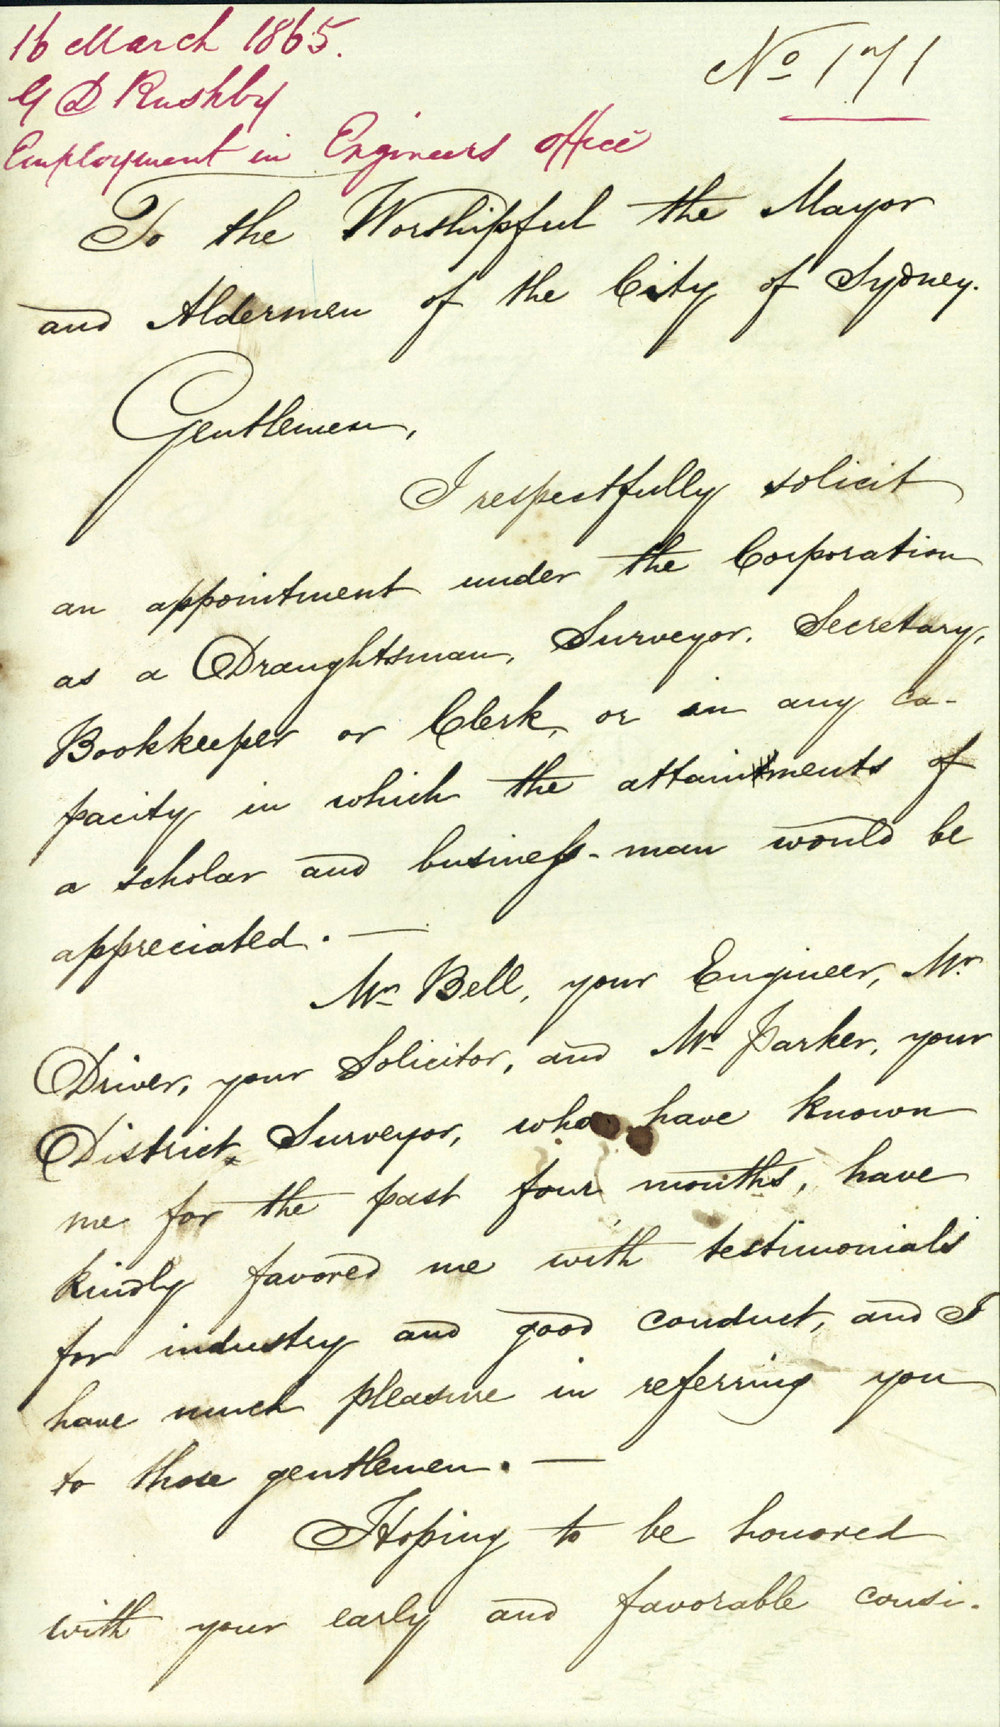 16 March 1865.
No 171
G D Rushby
Employment in Engineers office
To the Worshipful the Mayor
and Aldermen of the City of Sydney.
Gentlemen,
I respectfully solicit
an appointment under the Corporation
as a Draughtsman, Surveyor, Secretary,
Bookkeeper or Clerk, or in any ca-
pacity in which the attainments of
a scholar and business-man would be
appreciated. —
Mr Bell, your Engineer, Mr
Driver, your Solicitor, and Mr Parker, your
District Surveyor, who have known
me for the past four months, have
kindly favored me with testimonials
for industry and good conduct, and I
have much pleasure in referring you
to those gentlemen. —
Hoping to be honored
with your early and favorable consi-